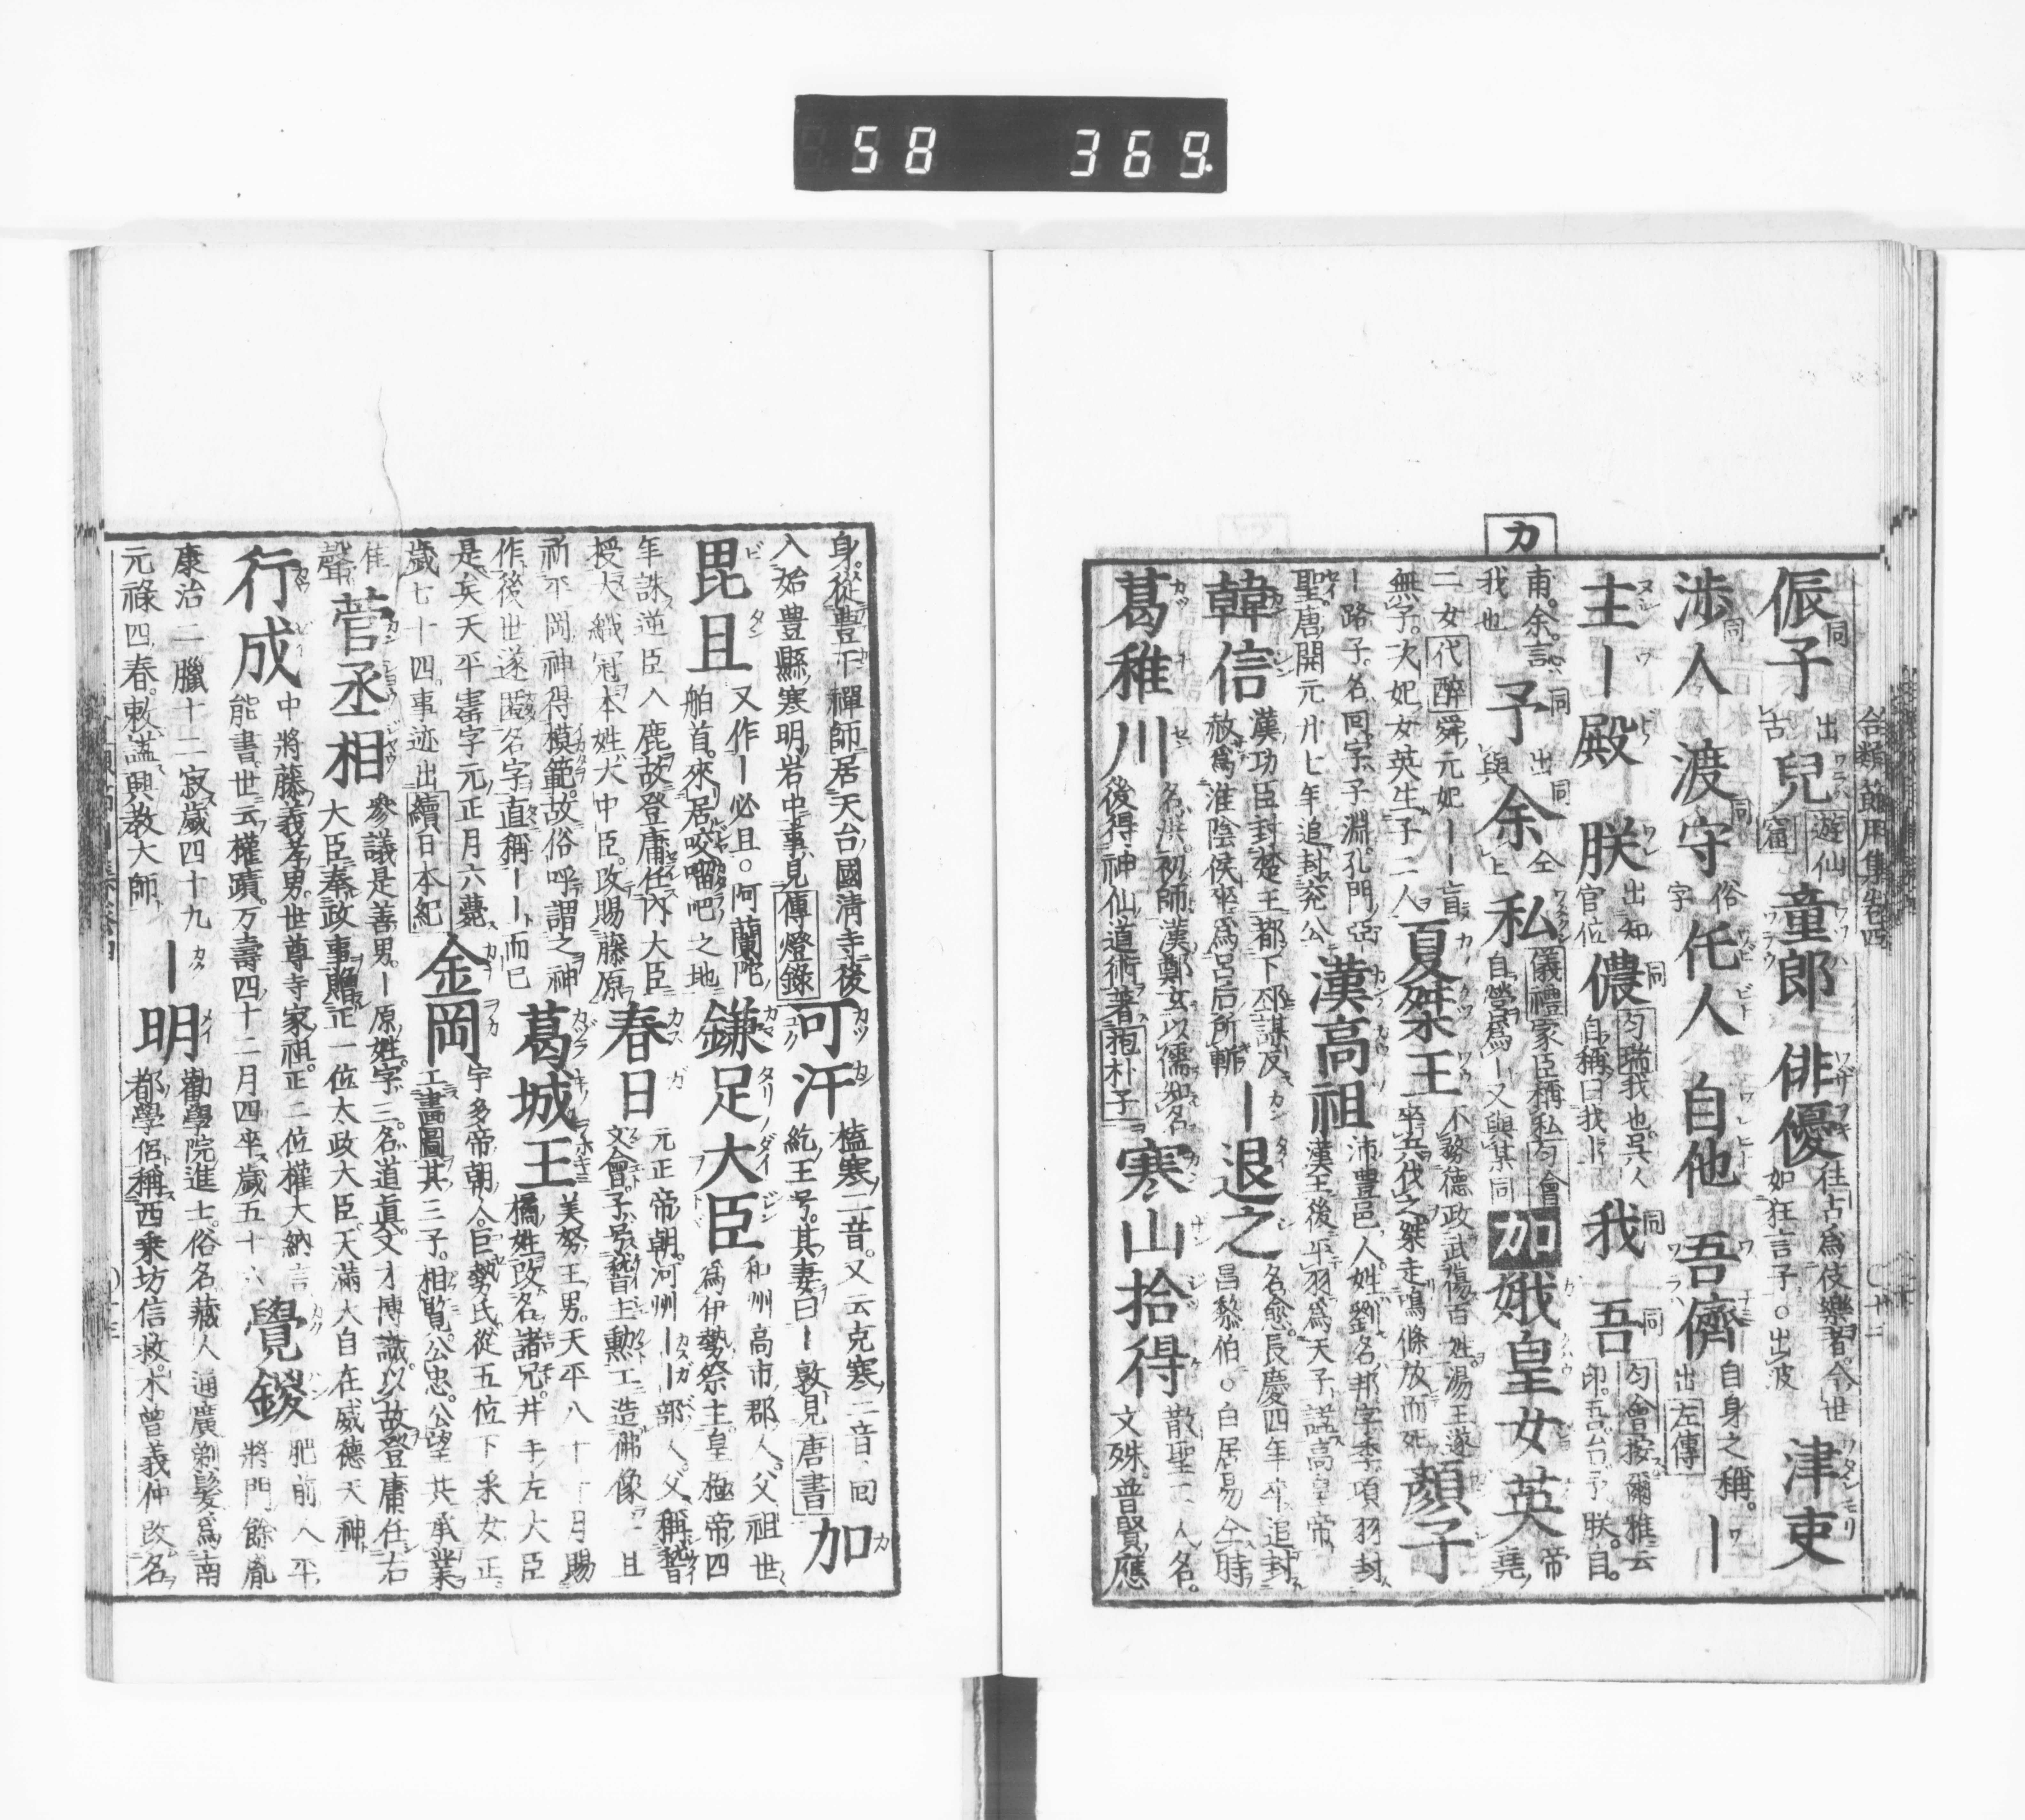 58 369
合類節用集卷四
カ
侲子 同 兒 出遊仙古窟 童郎 俳優 往古為伎樂者今世如狂言子○出彼 津吏
渉人 同 渡守 同 俗字 仛人 自他 吾儕 自身之稱出左傳 ー
主ー殿ー 朕 出知官位 儂 同 匀瑞我也吳人自稱曰我ー 我 同 吾 同 匀會按爾雅云印吾台予朕自
甫余言我也 予 同 出與 余 同 仝上 私 儀禮家臣稱私匀會自營為ー又與某同 加 娥皇女英 帝堯
二女代醉舜元妃ーー盲無子次妃女英生子二人 夏桀王 不務德政武傷百姓湯王遂卒兵伐之桀走鳴條放而死 顏子
ー路子名回字子淵孔門亞聖唐開元廿七年追封兗公 漢高祖 沛豊邑人姓劉名邦字季項羽封漢王後平羽為天子諡高皇帝
韓信 漢功臣封楚王都下邳謀反赦為淮陰侯卒為呂后所斬 ー退之 名愈長慶四年卒追封昌黎伯○白居易仝時
葛稚川 名洪初師漢鄭玄以儒知名後得神仙道術著抱朴子 寒山拾得 散聖二人名文殊普賢應
身從豊干禪師居天台國淸寺後入始豊縣寒明岩中事見傳燈錄 可汗 榼寒二音又云克寒二音回紇王号其妻曰ー敦見唐書 加
毘且 又作ー必且○阿蘭陀舶首來居咬𠺕吧之地 鎌足大臣 和州高市郡人父祖世為伊勢祭主皇極帝四
年誅逆臣入鹿故登庸任內大臣授大織冠本姓大中臣改賜藤原 春日 元正帝朝河州ーー部人父稱稽文會子号稽主勲工造佛像一且
祈平岡神得模範故俗呼謂之神作後世遂匿名字直稱ーー而已 葛城王 美努王男天平八年十一月賜橘姓改名諸兄井手左大臣
是矣天平寶字元正月六薨歲七十四事迹出續日本紀 金岡 宇多帝朝人巨勢氏從五位下采女正工畫圖其三子相覧公忠公望共承業
佳聲 菅丞相 參議是善男ー原姓字三名道眞文才博識以故登庸任右大臣奉政事贈正一位太政大臣天滿大自在威德天神
行成 中將藤義孝男世尊寺家祖正二位權大納言能書世云權蹟万壽四十二月四卒歲五十六 覺鑁 肥前人平將門餘胤
康治二臘十二寂歲四十九元祿四春敕諡興教大師 ー明 勸學院進士俗名藏人通廣剃髮為南都學侶稱西乗坊信救木曾義仲改名